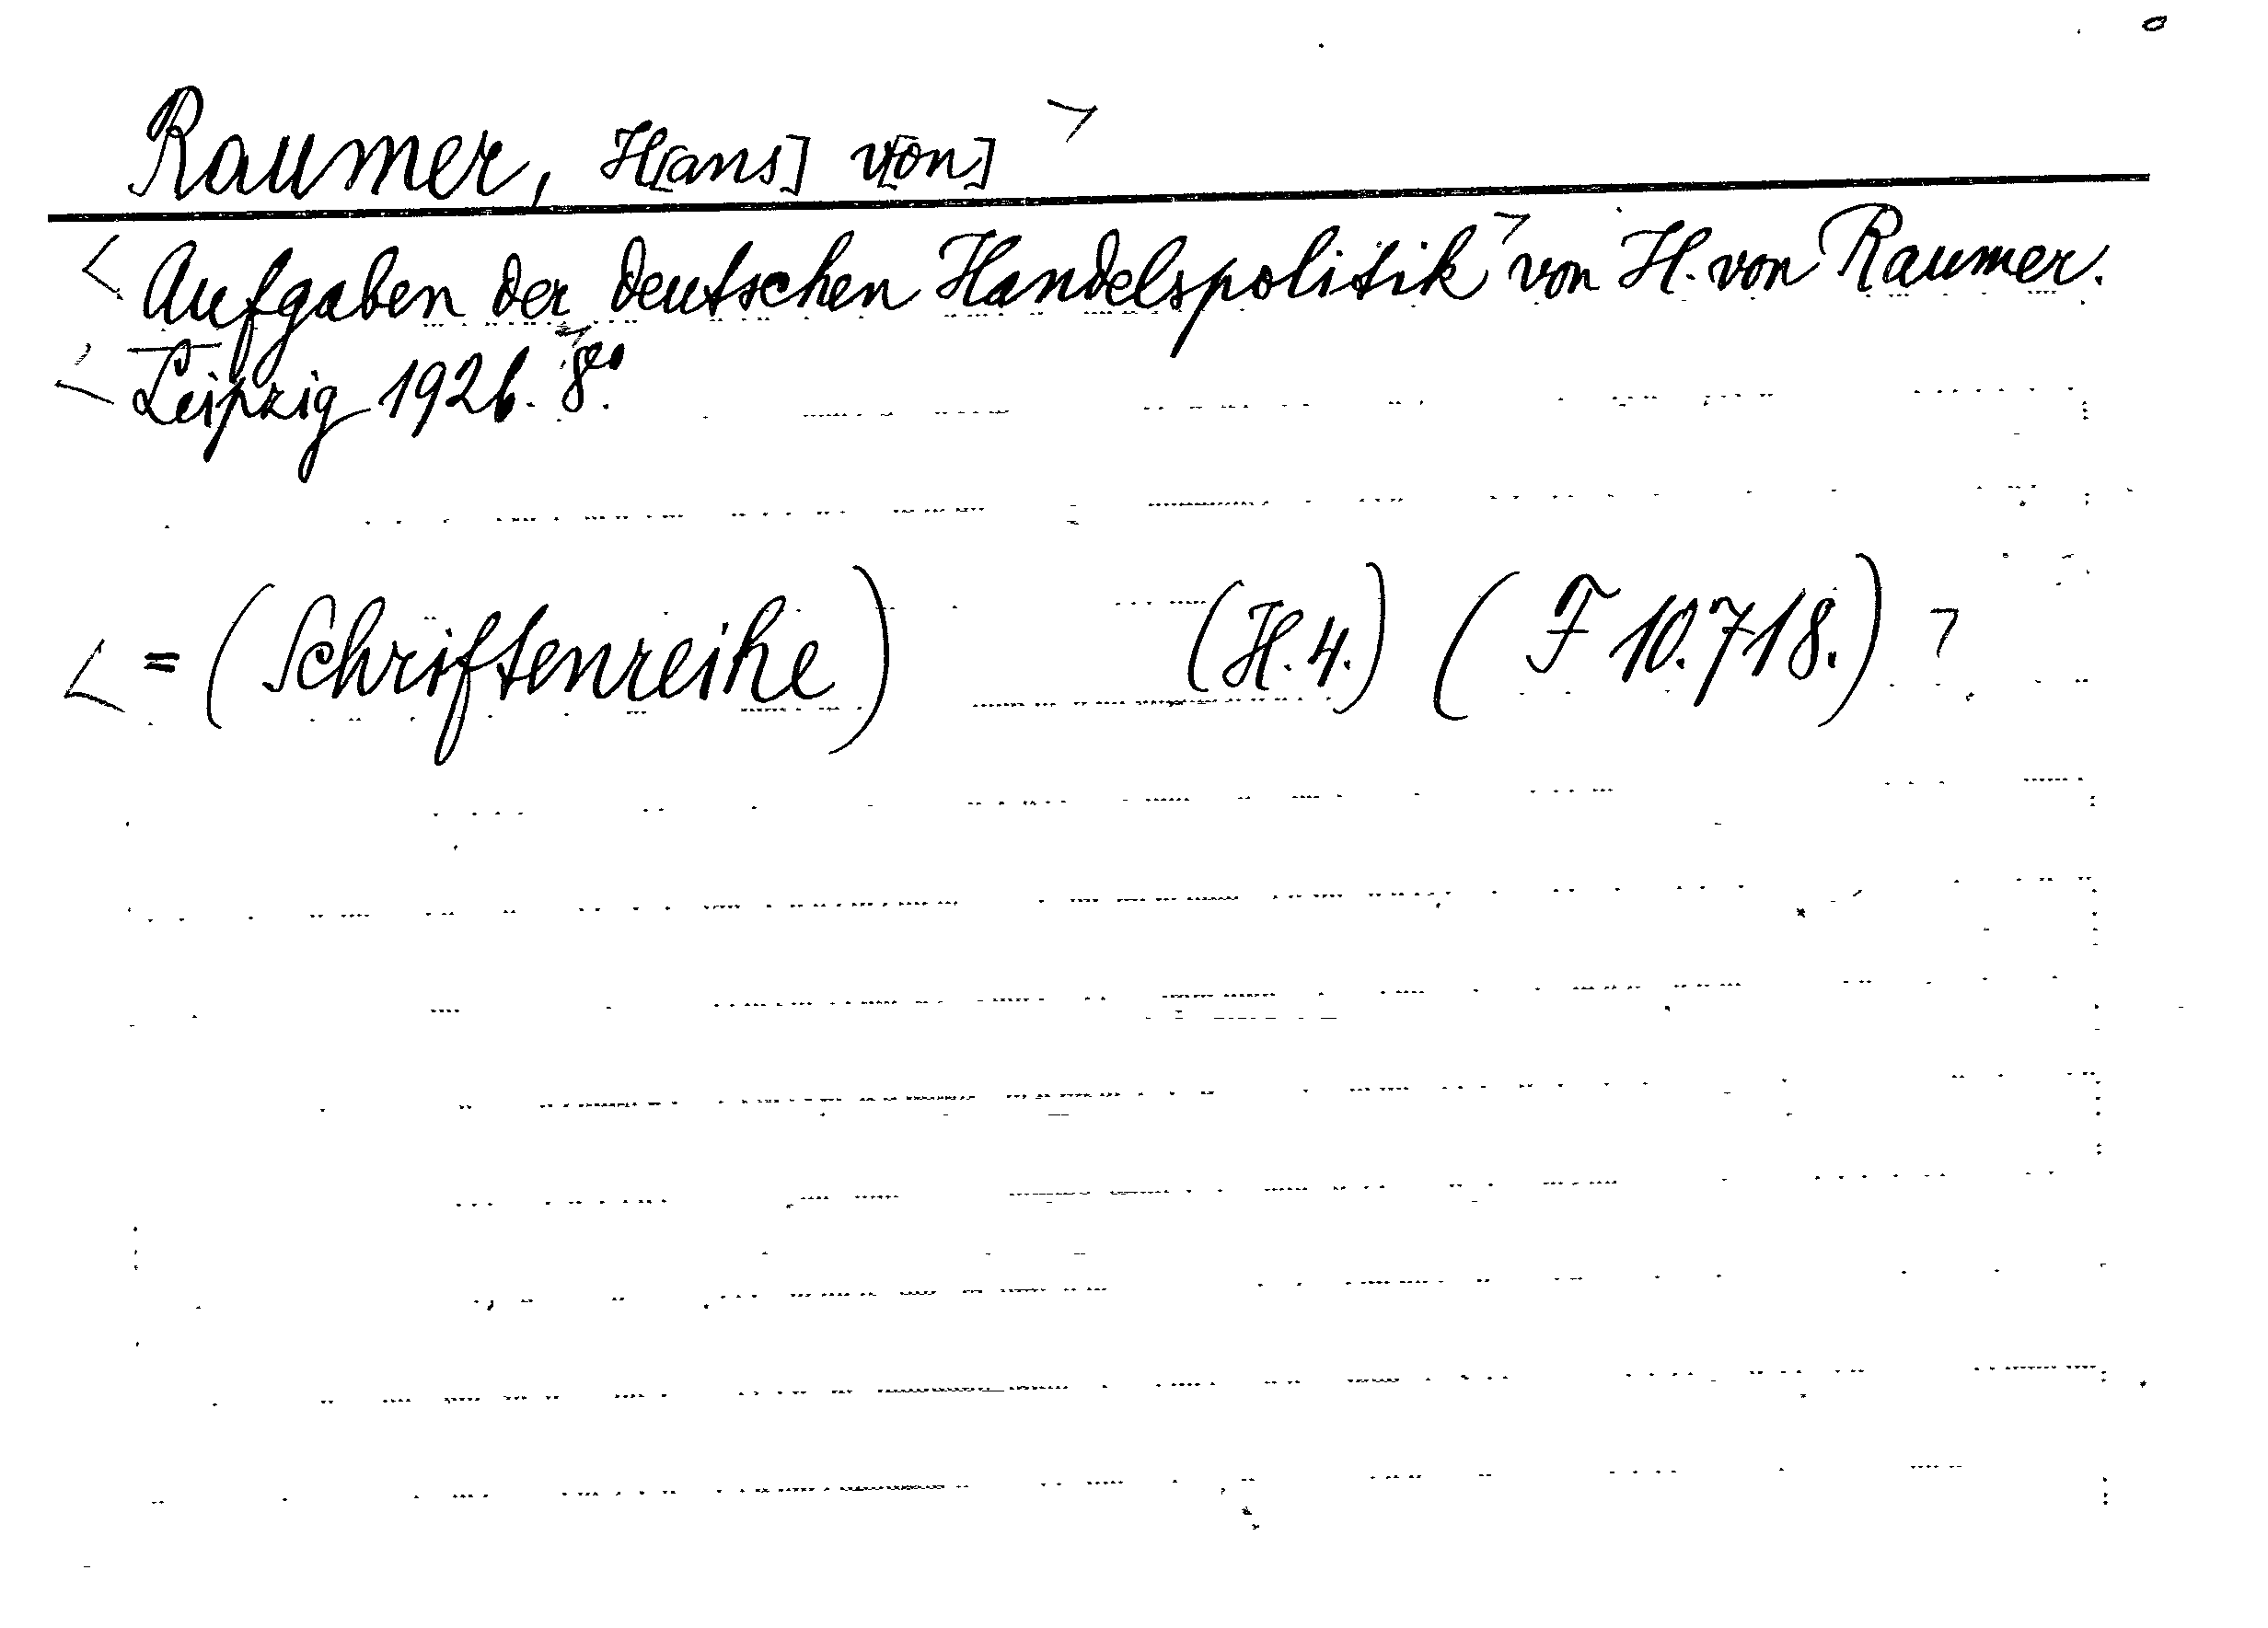 Raumer, H[ans] v[on] >
< Aufgaben der deutschen Handelspolitik > von H. von Raumer.
< Leipzig 1926. 8°.
< = (Schriftenreihe) (H. 4.) (F 10.718.) >